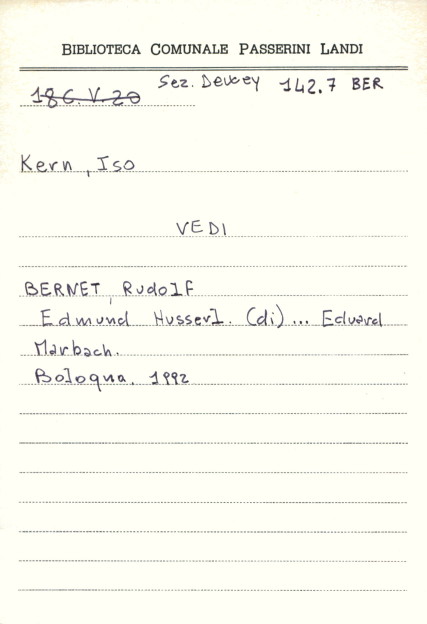 BIBLIOTECA COMUNALE PASSERINI LANDI
18 G. V. 20 Sez. Dewey 142.7 BER
Kern, Iso
VEDI
BERNET, Rudolf
Edmund Husserl. (di)... Eduard
Marbach.
Bologna, 1992